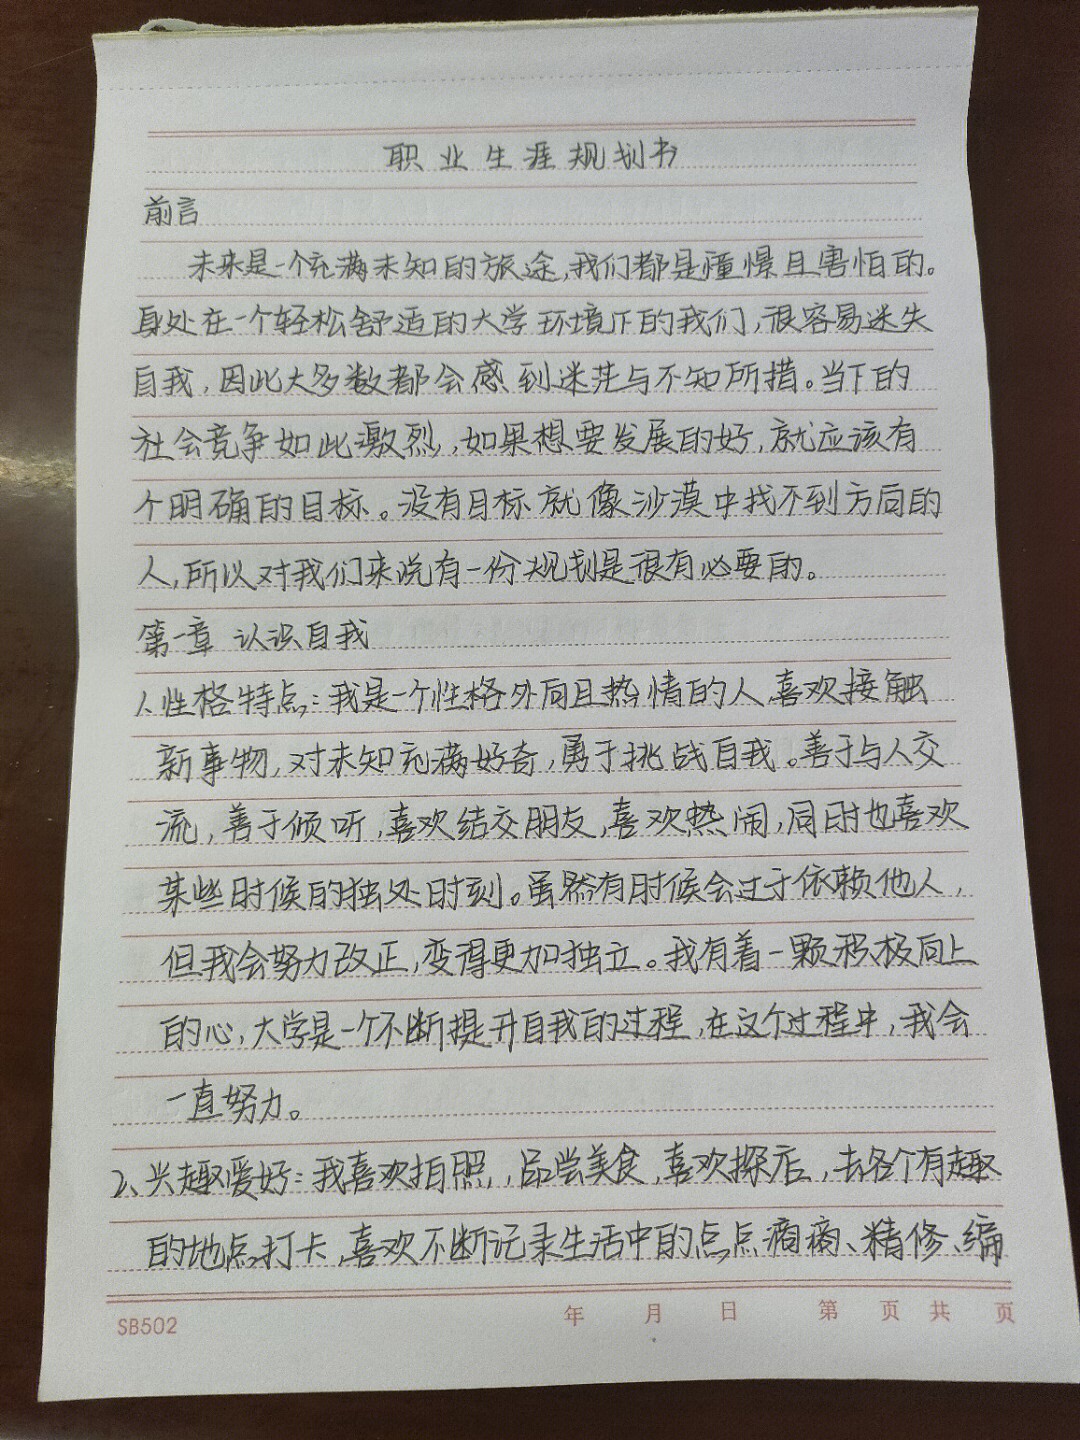 职业生涯规划书
前言
未来是一个充满未知的旅途,我们都是憧憬且害怕的。
身处在一个轻松舒适的大学环境下的我们,很容易迷失
自我,因此大多数都会感到迷茫与不知所措。当下的
社会竞争如此激烈,如果想要发展的好,就应该有
个明确的目标。没有目标就像沙漠中找不到方向的
人,所以对我们来说有一份规划是很有必要的。
第一章 认识自我
1、性格特点:我是一个性格外向且热情的人,喜欢接触
新事物,对未知充满好奇,勇于挑战自我。善于与人交
流,善于倾听,喜欢结交朋友,喜欢热闹,同时也喜欢
某些时候的独处时刻。虽然有时候会过于依赖他人,
但我会努力改正,变得更加独立。我有着一颗积极向上
的心,大学是一个不断提升自我的过程,在这个过程中,我会
一直努力。
2、兴趣爱好:我喜欢拍照,品尝美食,喜欢探店,去各个有趣
的地点打卡,喜欢不断记录生活中的点点滴滴、精修、编
SB502 年 月 日 第 页 共 页